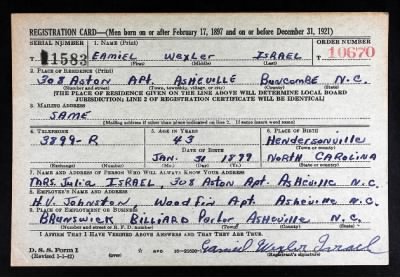 REGISTRATION CARD—(Men born on or after February 17, 1897 and on or before December 31, 1921)
SERIAL NUMBER 1. NAME (Print) ORDER NUMBER
T 11583 EAMIEL WEXLER ISRAEL T 10670
(First) (Middle) (Last)
2. PLACE OF RESIDENCE (Print)
308 ASTON Apt. ASHEVILLE BUNCOMBE N.C.
(Number and street) (Town, township, village, or city) (County) (State)
[THE PLACE OF RESIDENCE GIVEN ON THE LINE ABOVE WILL DETERMINE LOCAL BOARD
JURISDICTION; LINE 2 OF REGISTRATION CERTIFICATE WILL BE IDENTICAL]
3. MAILING ADDRESS
SAME
[Mailing address if other than place indicated on line 2. If same insert word same]
4. TELEPHONE 5. AGE IN YEARS 6. PLACE OF BIRTH
3899-R 43 Hendersonville
DATE OF BIRTH (Town or county)
JAN. 31 1899 NORTH CAROLINA
(Exchange) (Number) (Mo.) (Day) (Yr.) (State or country)
7. NAME AND ADDRESS OF PERSON WHO WILL ALWAYS KNOW YOUR ADDRESS
MRS. Julia ISRAEL, 308 ASTON Apt. Asheville N.C.
8. EMPLOYER'S NAME AND ADDRESS
H.V. JOHNSTON Woodfin Apt. Asheville N.C.
9. PLACE OF EMPLOYMENT OR BUSINESS
BRUNSWICK BILLIARD Parlor ASHEVILLE N.C.
(Number and street or R. F. D. number) (Town) (County) (State)
I AFFIRM THAT I HAVE VERIFIED ABOVE ANSWERS AND THAT THEY ARE TRUE.
D. S. S. Form 1
(Revised 1-1-42) GPO Eamiel Wexler Israel
(Registrant's signature)